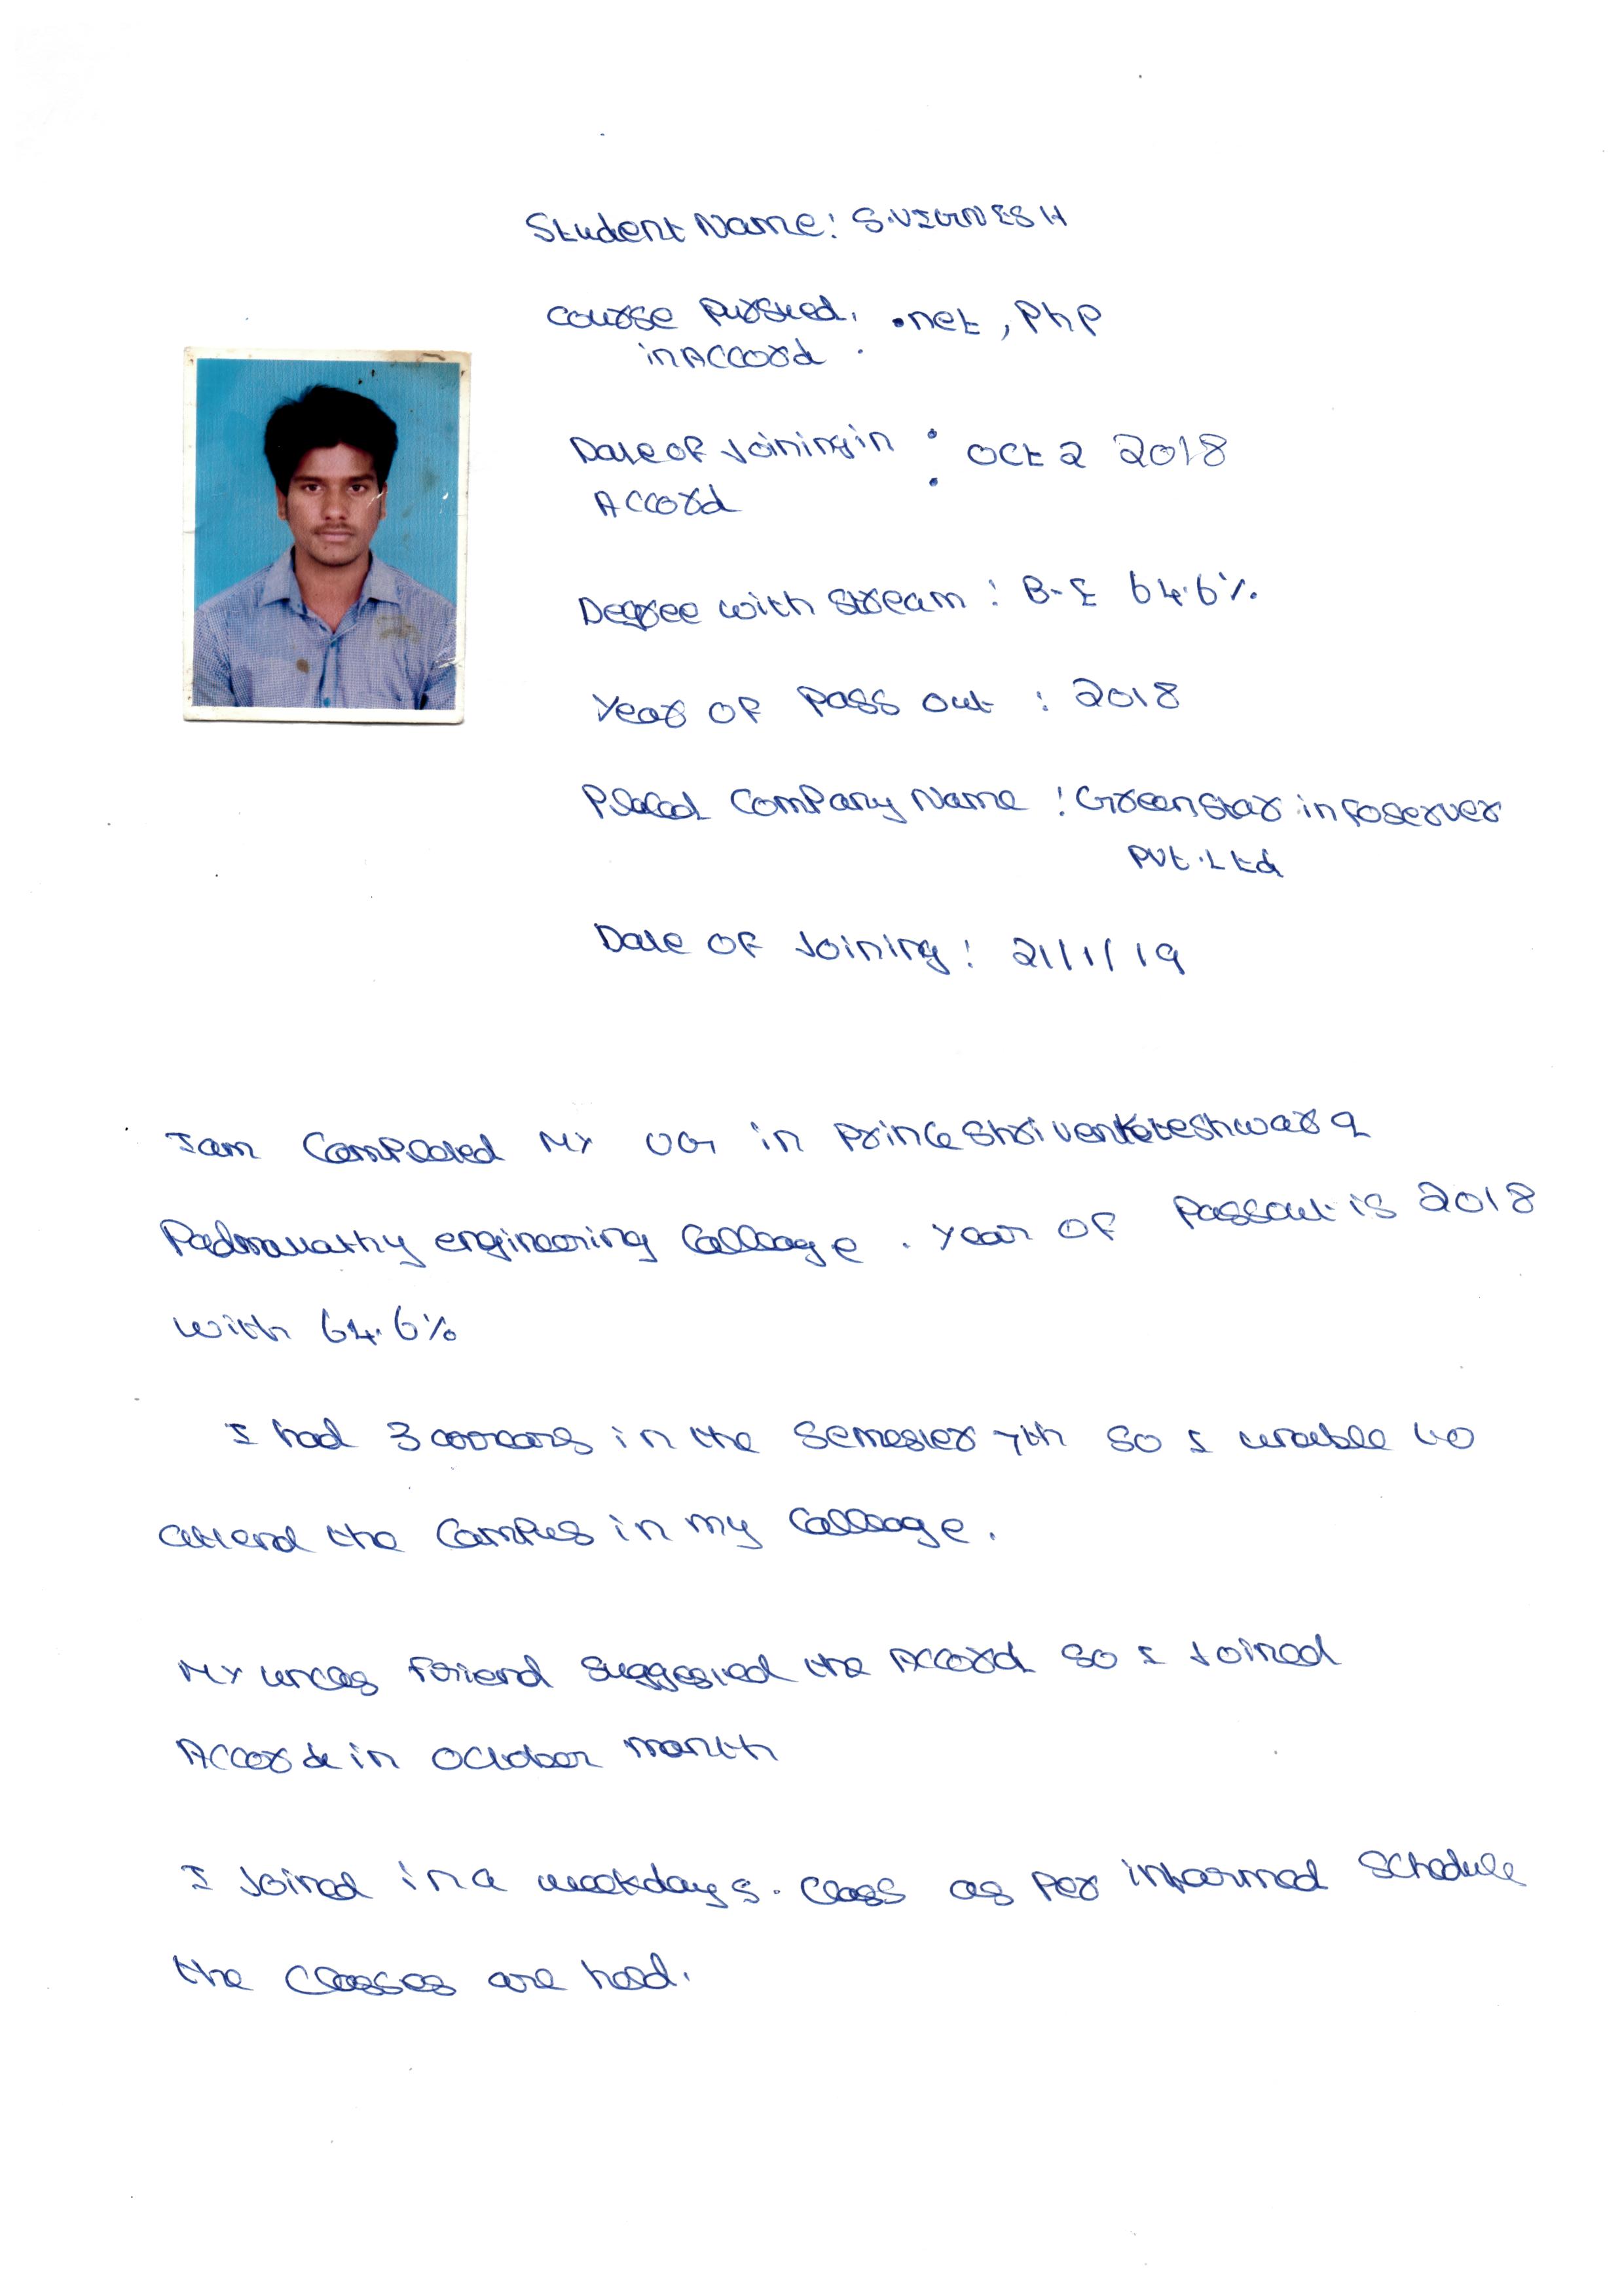 Student Name: S.VIGNESH
Course Pursued. .net, PhP
in Accord
Date of Joining in : Oct 2 2018
Accord
Degree with Stream : B.E 64.6%
Year of Pass out : 2018
Placed Company Name : Green Star infoserver
Pvt.Ltd
Date of Joining : 21/1/19
I am Completed My UG in Prince Shri Venkateshwara
Padmavathy engineering Colleage. Year of Passout is 2018
with 64.6%
I had 3 arrears in the Semester 7th so I unable to
attend the Campus in my Colleage.
My uncles friend Suggested the Accord so I Joined
Accord in October month
I Joined in a weekdays. Class as Per informed Schedule
the Classes are held.